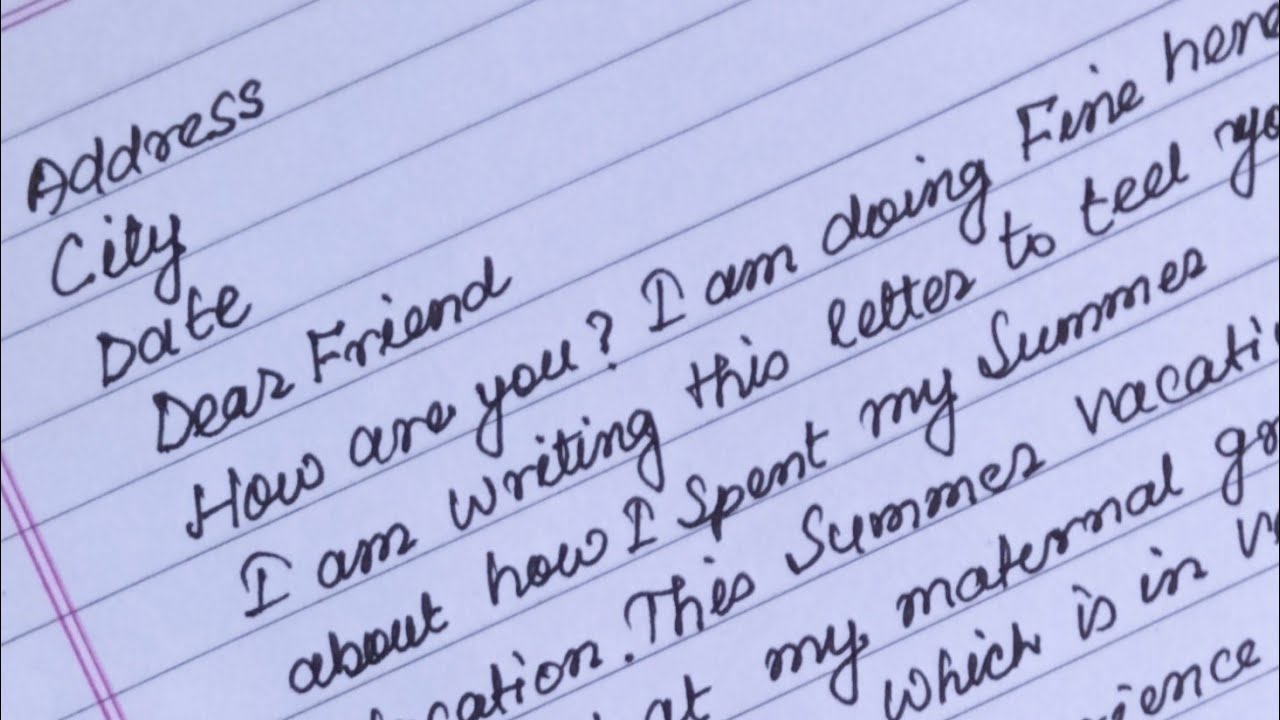 Address
City
Date
Dear Friend
How are you? I am doing Fine here
I am writing this letter to tell yo
about how I spent my Summer
cation. This Summer vacati
at my maternal gr
which is in
ience